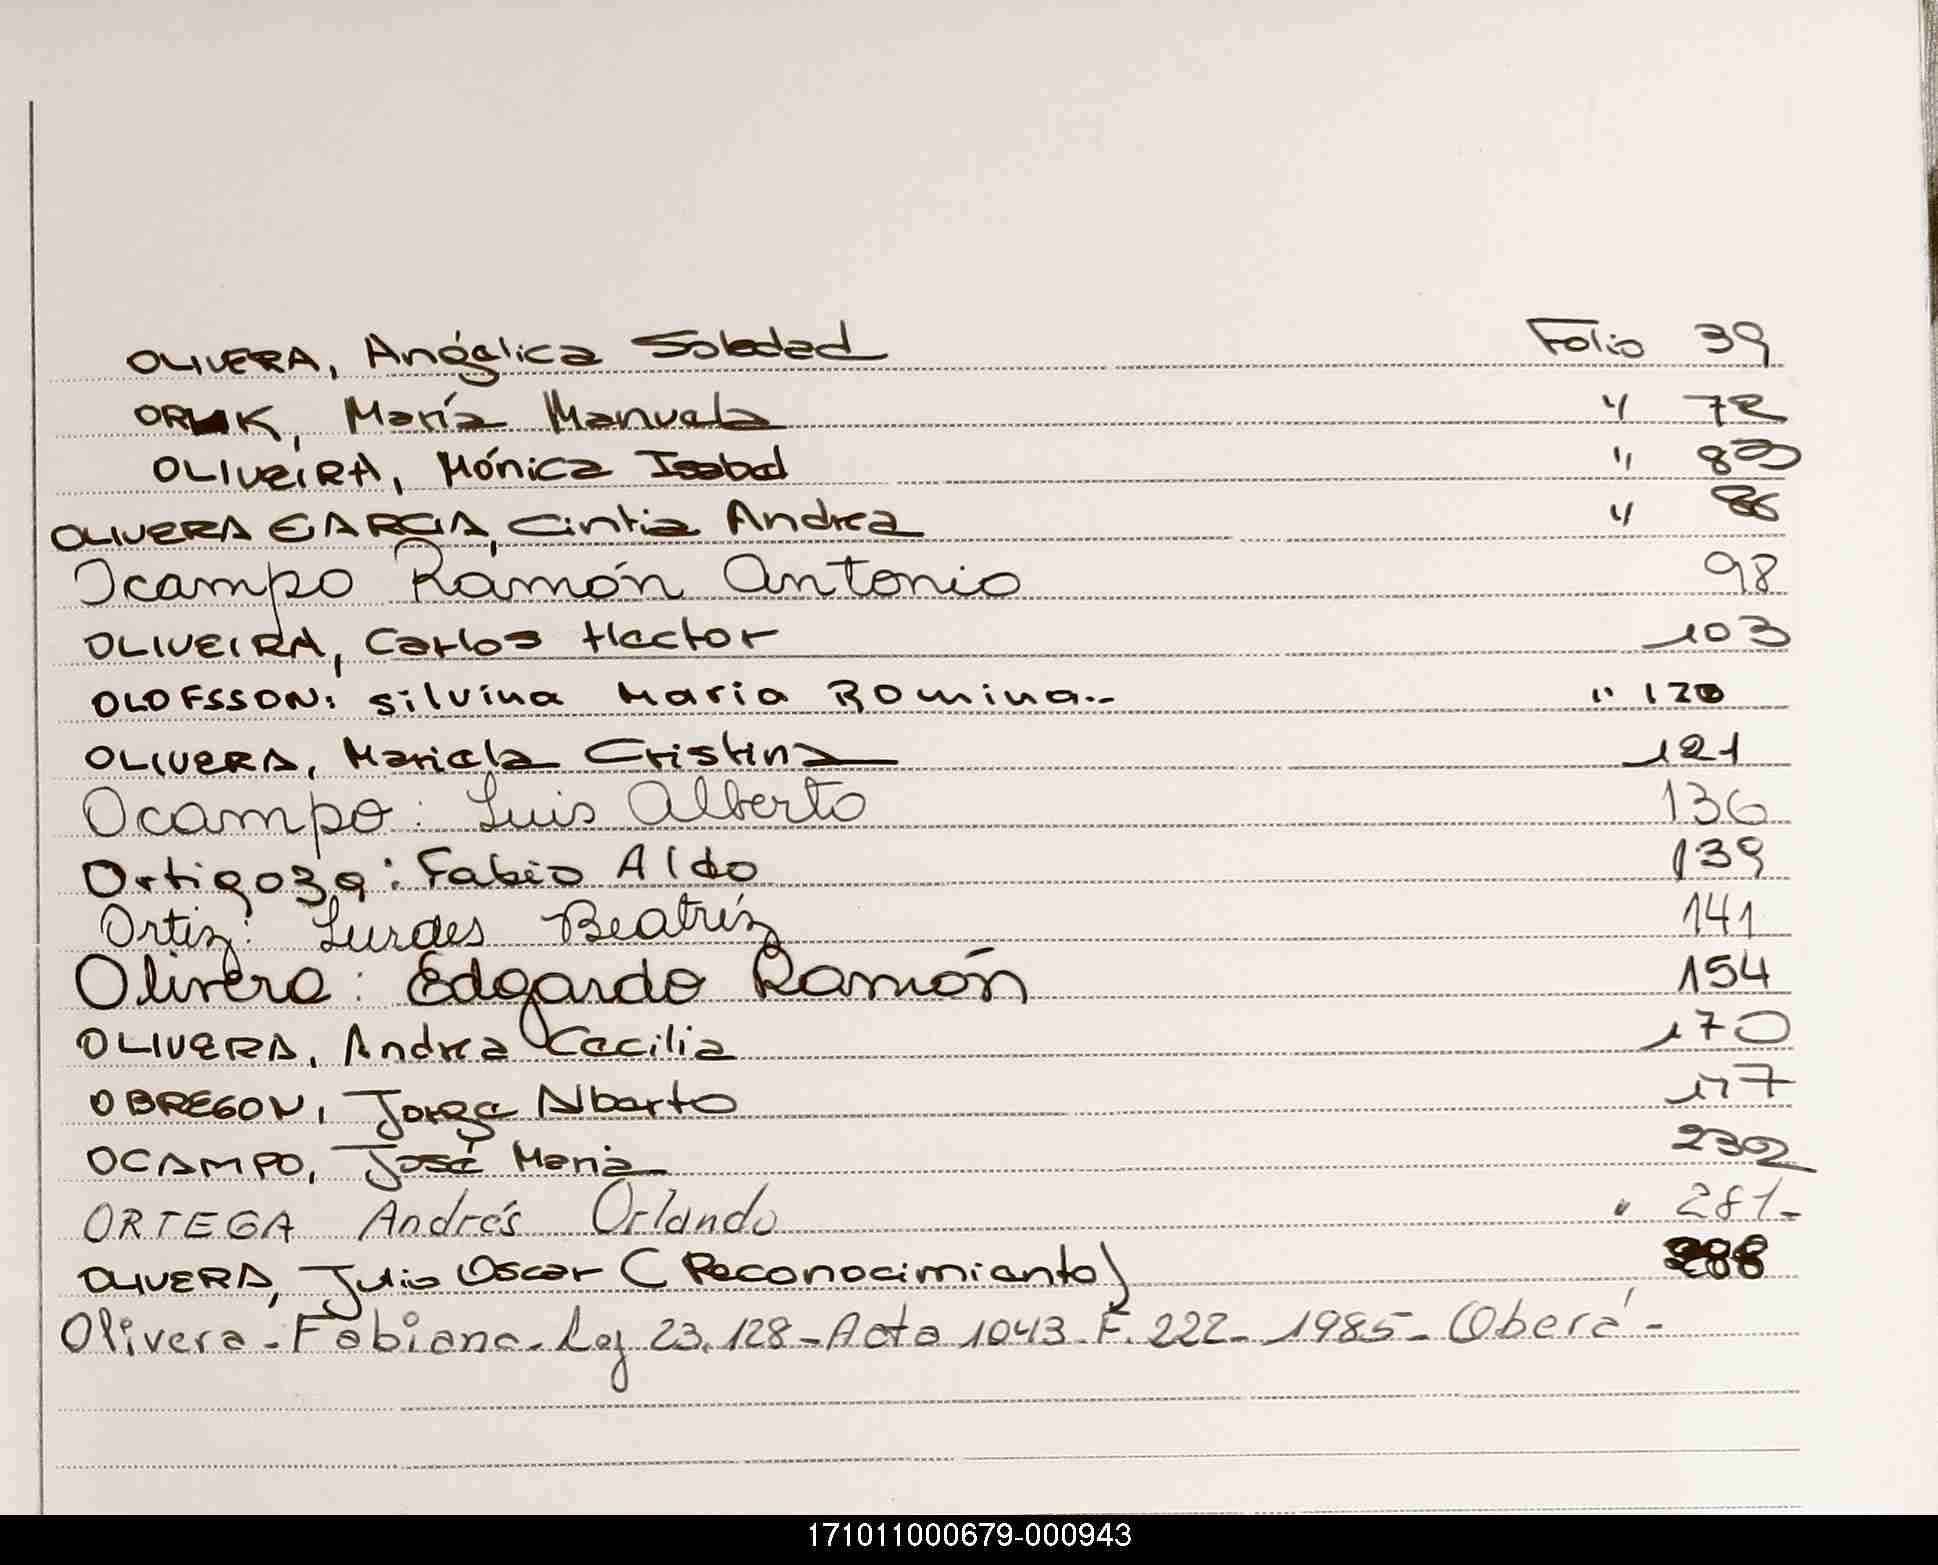 OLIVERA, Angélica Soledad Folio 39
María Manuela " 72
OLIVEIRA, Mónica Isabel "
OLIVERA GARCIA, Cintia Andrea " 86
Ocampo Ramón Antonio 98
OLIVEIRA, Carlos Hector 103
OLOFSSON: Silvina Maria Romina.. " 120
OLIVERA, Mariela Cristina 121
Ocampo: Luis Alberto 136
Ortigoza: Fabio Aldo 139
Ortiz: Lurdes Beatríz 141
Olivera: Edgardo Ramón 154
OLIVERA, Andrea Cecilia 170
OBREGON, Jorge Alberto 177
OCAMPO, José Maria
ORTEGA Andrés Orlando " 281-
OLIVERA, Julio Oscar (Reconocimiento) 288
Olivera - Fabiana - Ley 23.128 - Acta 1043 - F. 222 - 1985 - Oberá -
171011000679-000943